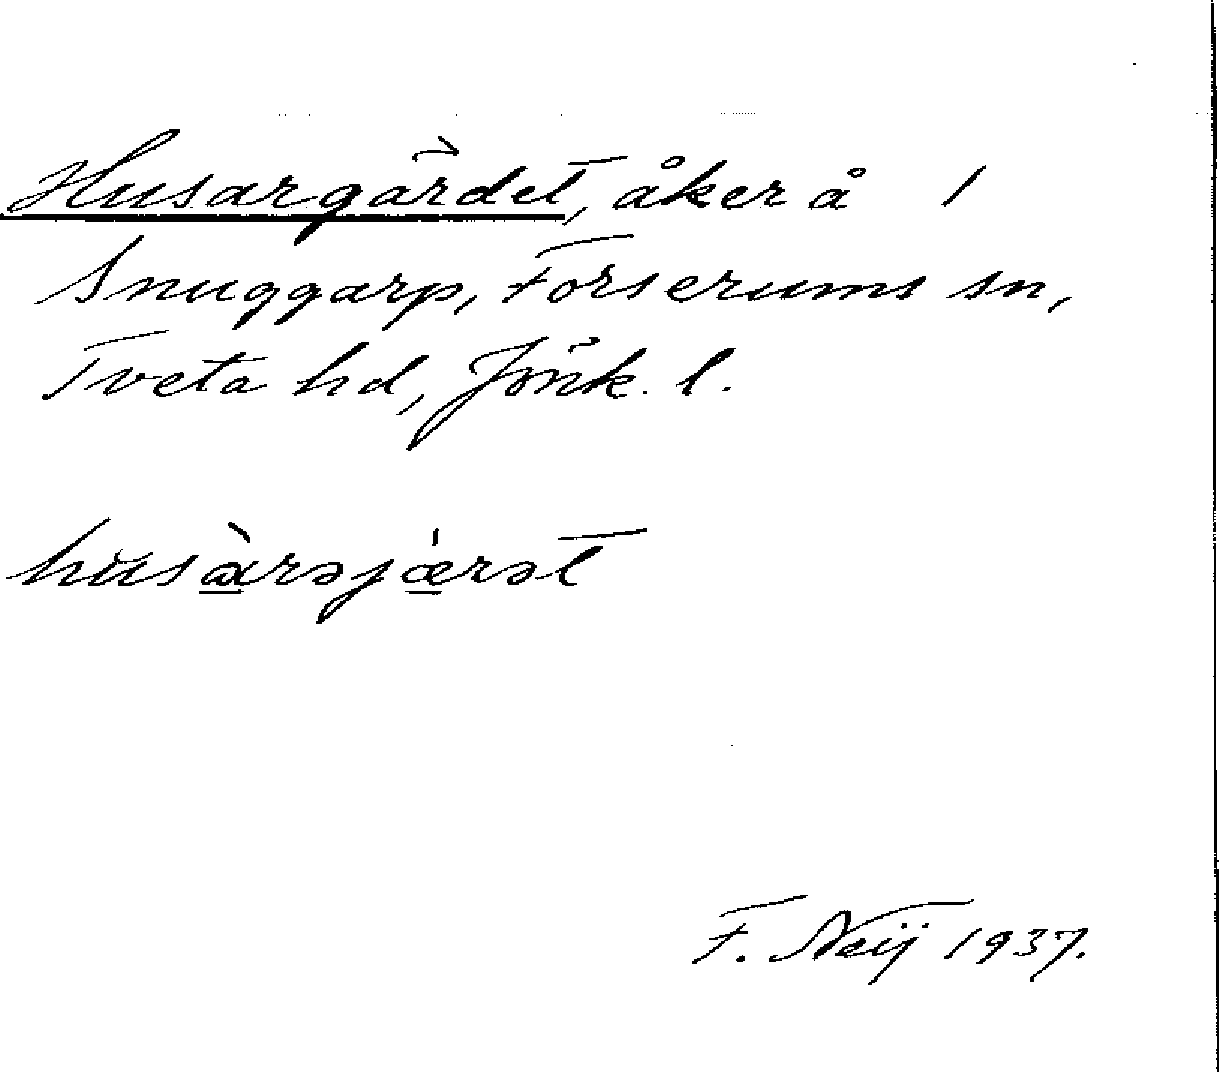 Husargärdet, åker å 1
Snuggarp, Forserums sn,
Tveta hd, Jönk. l.
husàrəjǽrət
F. Neij 1937.